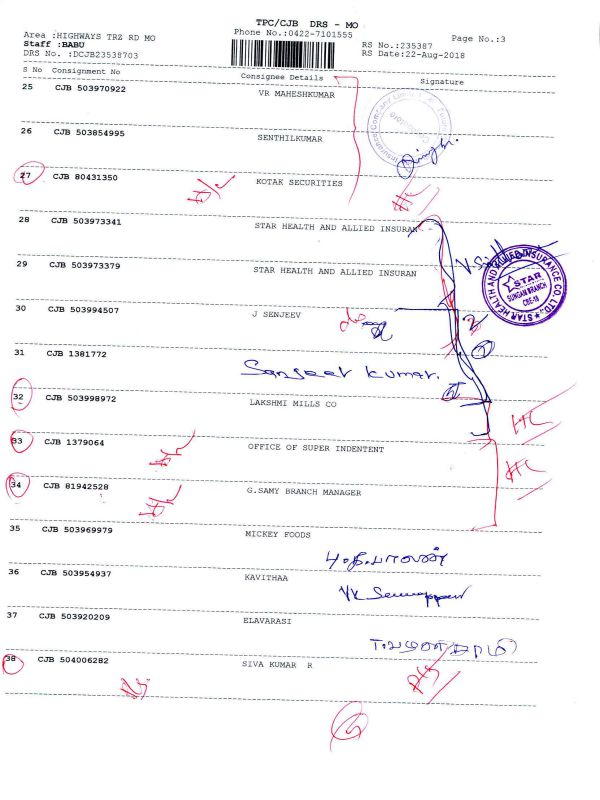 TPC/CJB DRS - MO
Area :HIGHWAYS TRZ RD MO Phone No.:0422-7101555 Page No.:3
Staff :BABU RS No.:235387
DRS No. :DCJB23538703 RS Date:22-Aug-2018
S No Consignment No Consignee Details Signature
25 CJB 503970922 VR MAHESHKUMAR
26 CJB 503854995 SENTHILKUMAR
27 CJB 80431350 KOTAK SECURITIES
28 CJB 503973341 STAR HEALTH AND ALLIED INSURAN
29 CJB 503973379 STAR HEALTH AND ALLIED INSURAN
STAR HEALTH AND ALLIED INSURANCE CO. LTD.
STAR
SUNGAM BRANCH
CBE-18
30 CJB 503994507 J SENJEEV
31 CJB 1381772
Sanjeet Kumar.
32 CJB 503998972 LAKSHMI MILLS CO
33 CJB 1379064 OFFICE OF SUPER INDENTENT
34 CJB 81942528 G.SAMY BRANCH MANAGER
35 CJB 503969979 MICKEY FOODS
36 CJB 503954937 KAVITHAA
37 CJB 503920209 ELAVARASI
38 CJB 504006282 SIVA KUMAR R